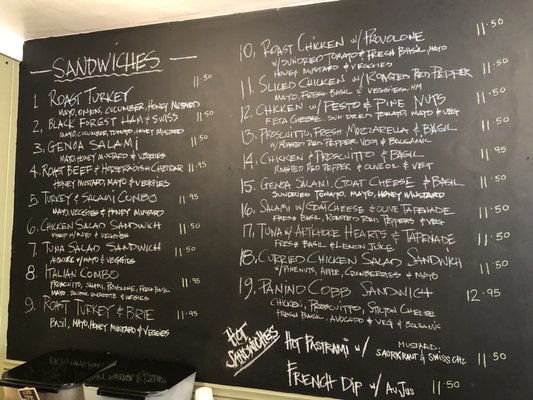 SANDWICHES
11.50
1. ROAST TURKEY
MAYO, ONION, CUCUMBER, HONEY MUSTARD
11.50
2. BLACK FOREST HAM & SWISS
MAYO, CUCUMBER, TOMATO, HONEY MUSTARD
3. GENOA SALAMI 11.50
MAYO, HONEY MUSTARD & VEGGIES
4. ROAST BEEF & HORSERADISH CHEDDAR 11.95
HONEY MUSTARD, MAYO & VEGGIES
5. TURKEY & SALAMI COMBO 11.95
MAYO, VEGGIES & HONEY MUSTARD
6. CHICKEN SALAD SANDWICH 11.50
MAYO & VEGGIES
7. TUNA SALAD SANDWICH 11.50
ALBACORE W/ MAYO & VEGGIES
8. ITALIAN COMBO 11.95
PROSCIUTTO, SALAMI, PROVOLONE, FRESH BASIL
MAYO, VEGGIES
9. ROAST TURKEY & BRIE 11.95
BASIL, MAYO, HONEY MUSTARD & VEGGIES
10. ROAST CHICKEN W/ PROVOLONE 11.50
W/ SUNDRIED TOMATO & FRESH BASIL, MAYO
HONEY MUSTARD & VEGGIES
11. SLICED CHICKEN W/ ROASTED RED PEPPER 11.50
MAYO, FRESH BASIL & VEGGIES, HM
12. CHICKEN W/ PESTO & PINE NUTS 11.50
FETA CHEESE, SUN DRIED TOMATO, MAYO & VEG
13. PROSCIUTTO, FRESH MOZZARELLA & BASIL 11.50
W/ ROASTED RED PEPPER, VEG & BALSAMIC
14. CHICKEN & PROSCIUTTO & BASIL 11.95
ROASTED RED PEPPER & OLIVE OIL & VEGT
15. GENOA SALAMI, GOAT CHEESE & BASIL 11.50
SUNDRIED TOMATO, MAYO, HONEY MUSTARD
16. SALAMI W/ GOAT CHEESE & OLIVE TAPENADE 11.50
FRESH BASIL, ROASTED RED PEPPERS & VEGT
17. TUNA W/ ARTICHOKE HEARTS & TAPENADE 11.50
FRESH BASIL & LEMON JUICE
18. CURRIED CHICKEN SALAD SANDWICH 11.50
W/ PINENUTS, APPLE, CRANBERRIES & MAYO
19. PANINO COBB SANDWICH 12.95
CHICKEN, PROSCIUTTO, STILTON CHEESE
FRESH BASIL, AVOCADO & VEG & BALSAMIC
HOT
SANDWICHES
HOT PASTRAMI W/ MUSTARD, 11.50
SAURKRAUT & SWISS CHZ
FRENCH DIP W/ AU JUS 11.50